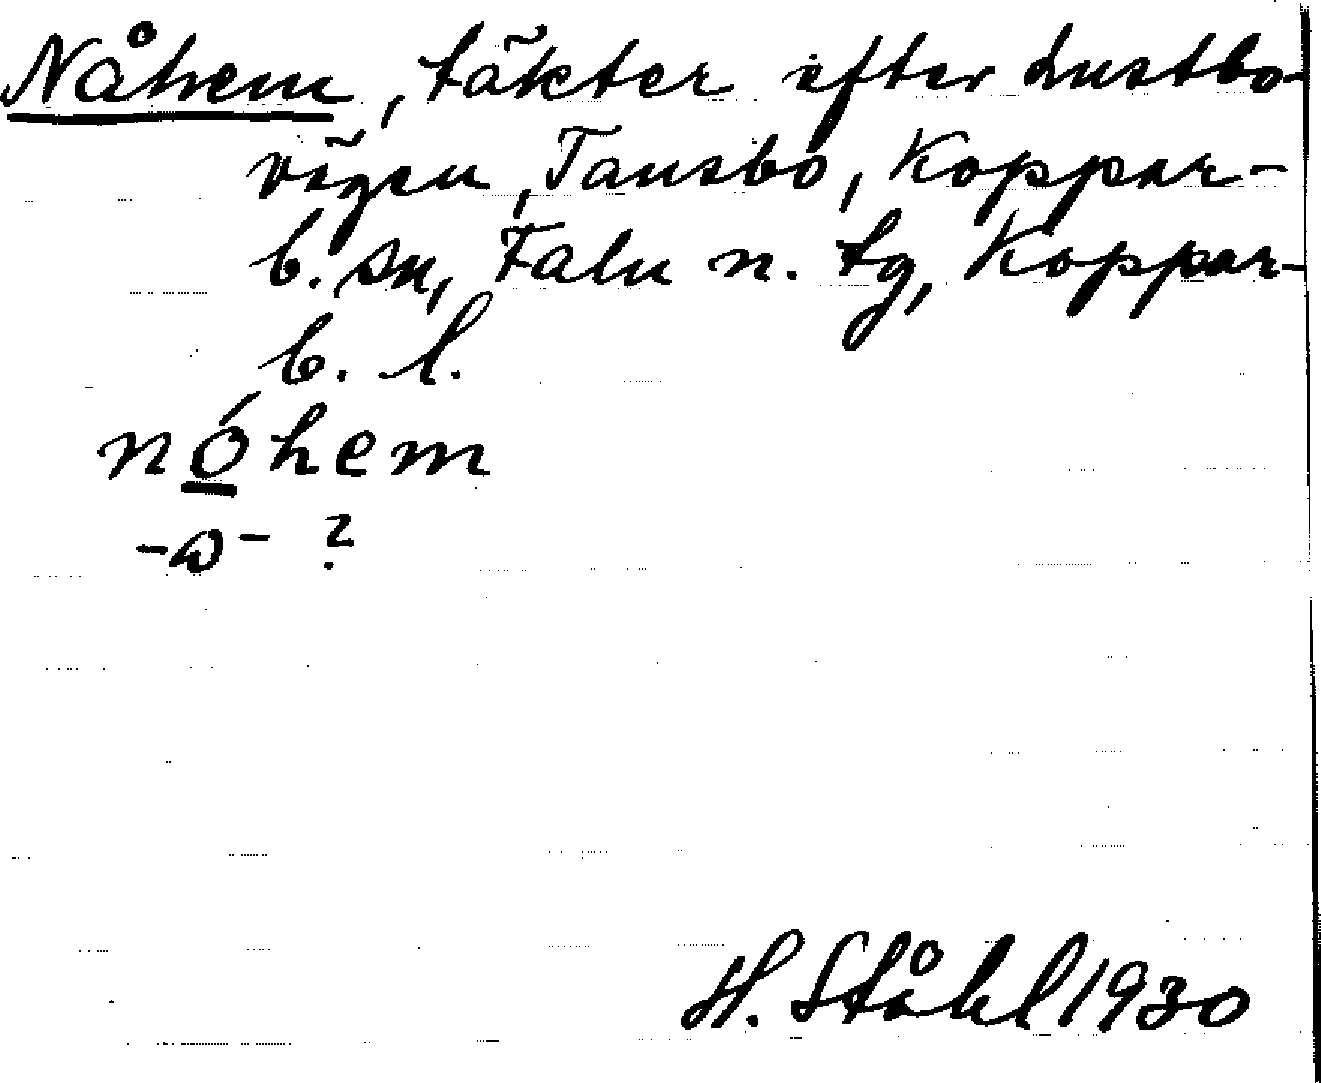 Nåhem, täkter efter Lustbo-
vägen, Tansbo, Koppar-
b. sn, Falu n. tg, Koppar-
b. l.
nóhem
-ɷ- ?
H. Ståhl 1930